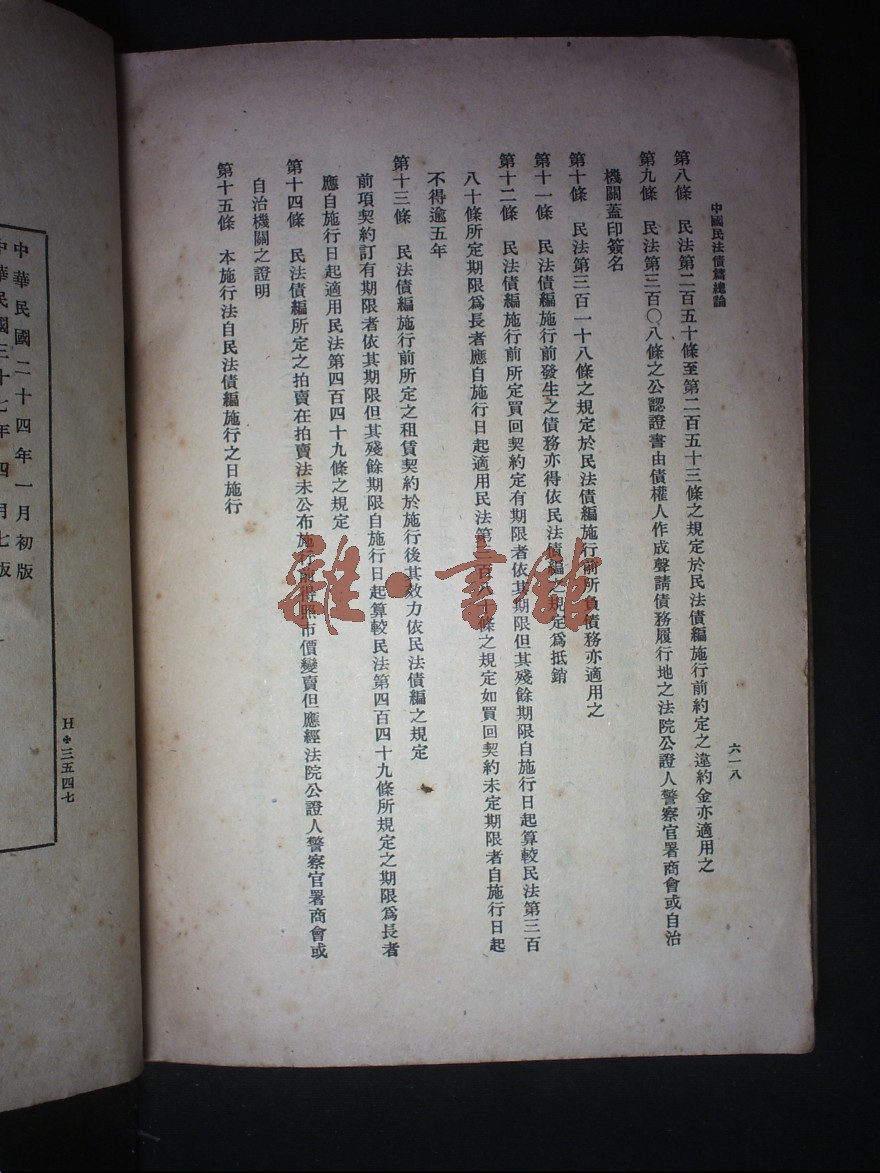 中國民法債篇總論
六一八
第八條　民法第二百五十條至第二百五十三條之規定於民法債編施行前約定之違約金亦適用之
第九條　民法第三百〇八條之公認證書由債權人作成聲請債務履行地之法院公證人警察官署商會或自治
機關蓋印簽名
第十條　民法第三百一十八條之規定於民法債編施行前所負債務亦適用之
第十一條　民法債編施行前發生之債務亦得依民法債編之規定爲抵銷
第十二條　民法債編施行前所定買回契約定有期限者依其期限但其殘餘期限自施行日起算較民法第三百
八十條所定期限爲長者應自施行日起適用民法第三百八十條之規定如買回契約未定期限者自施行日起
不得逾五年
第十三條　民法債編施行前所定之租賃契約於施行後其效力依民法債編之規定
前項契約訂有期限者依其期限但其殘餘期限自施行日起算較民法第四百四十九條所規定之期限爲長者
應自施行日起適用民法第四百四十九條之規定
第十四條　民法債編所定之拍賣在拍賣法未公布施行前得照市價變賣但應經法院公證人警察官署商會或
自治機關之證明
第十五條　本施行法自民法債編施行之日施行
雜·書館
H＊三五四七
中華民國二十四年一月初版
中華民國三十七年四月七版